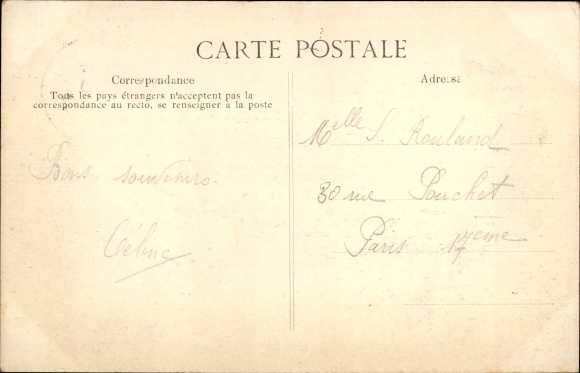 CARTE POSTALE
Correspondance
Tous les pays étrangers n'acceptent pas la
correspondance au recto, se renseigner à la poste
Bons souvenirs.
Céline
Adresse
Melle S. Rouland
30 rue Pouchet
Paris 17eme